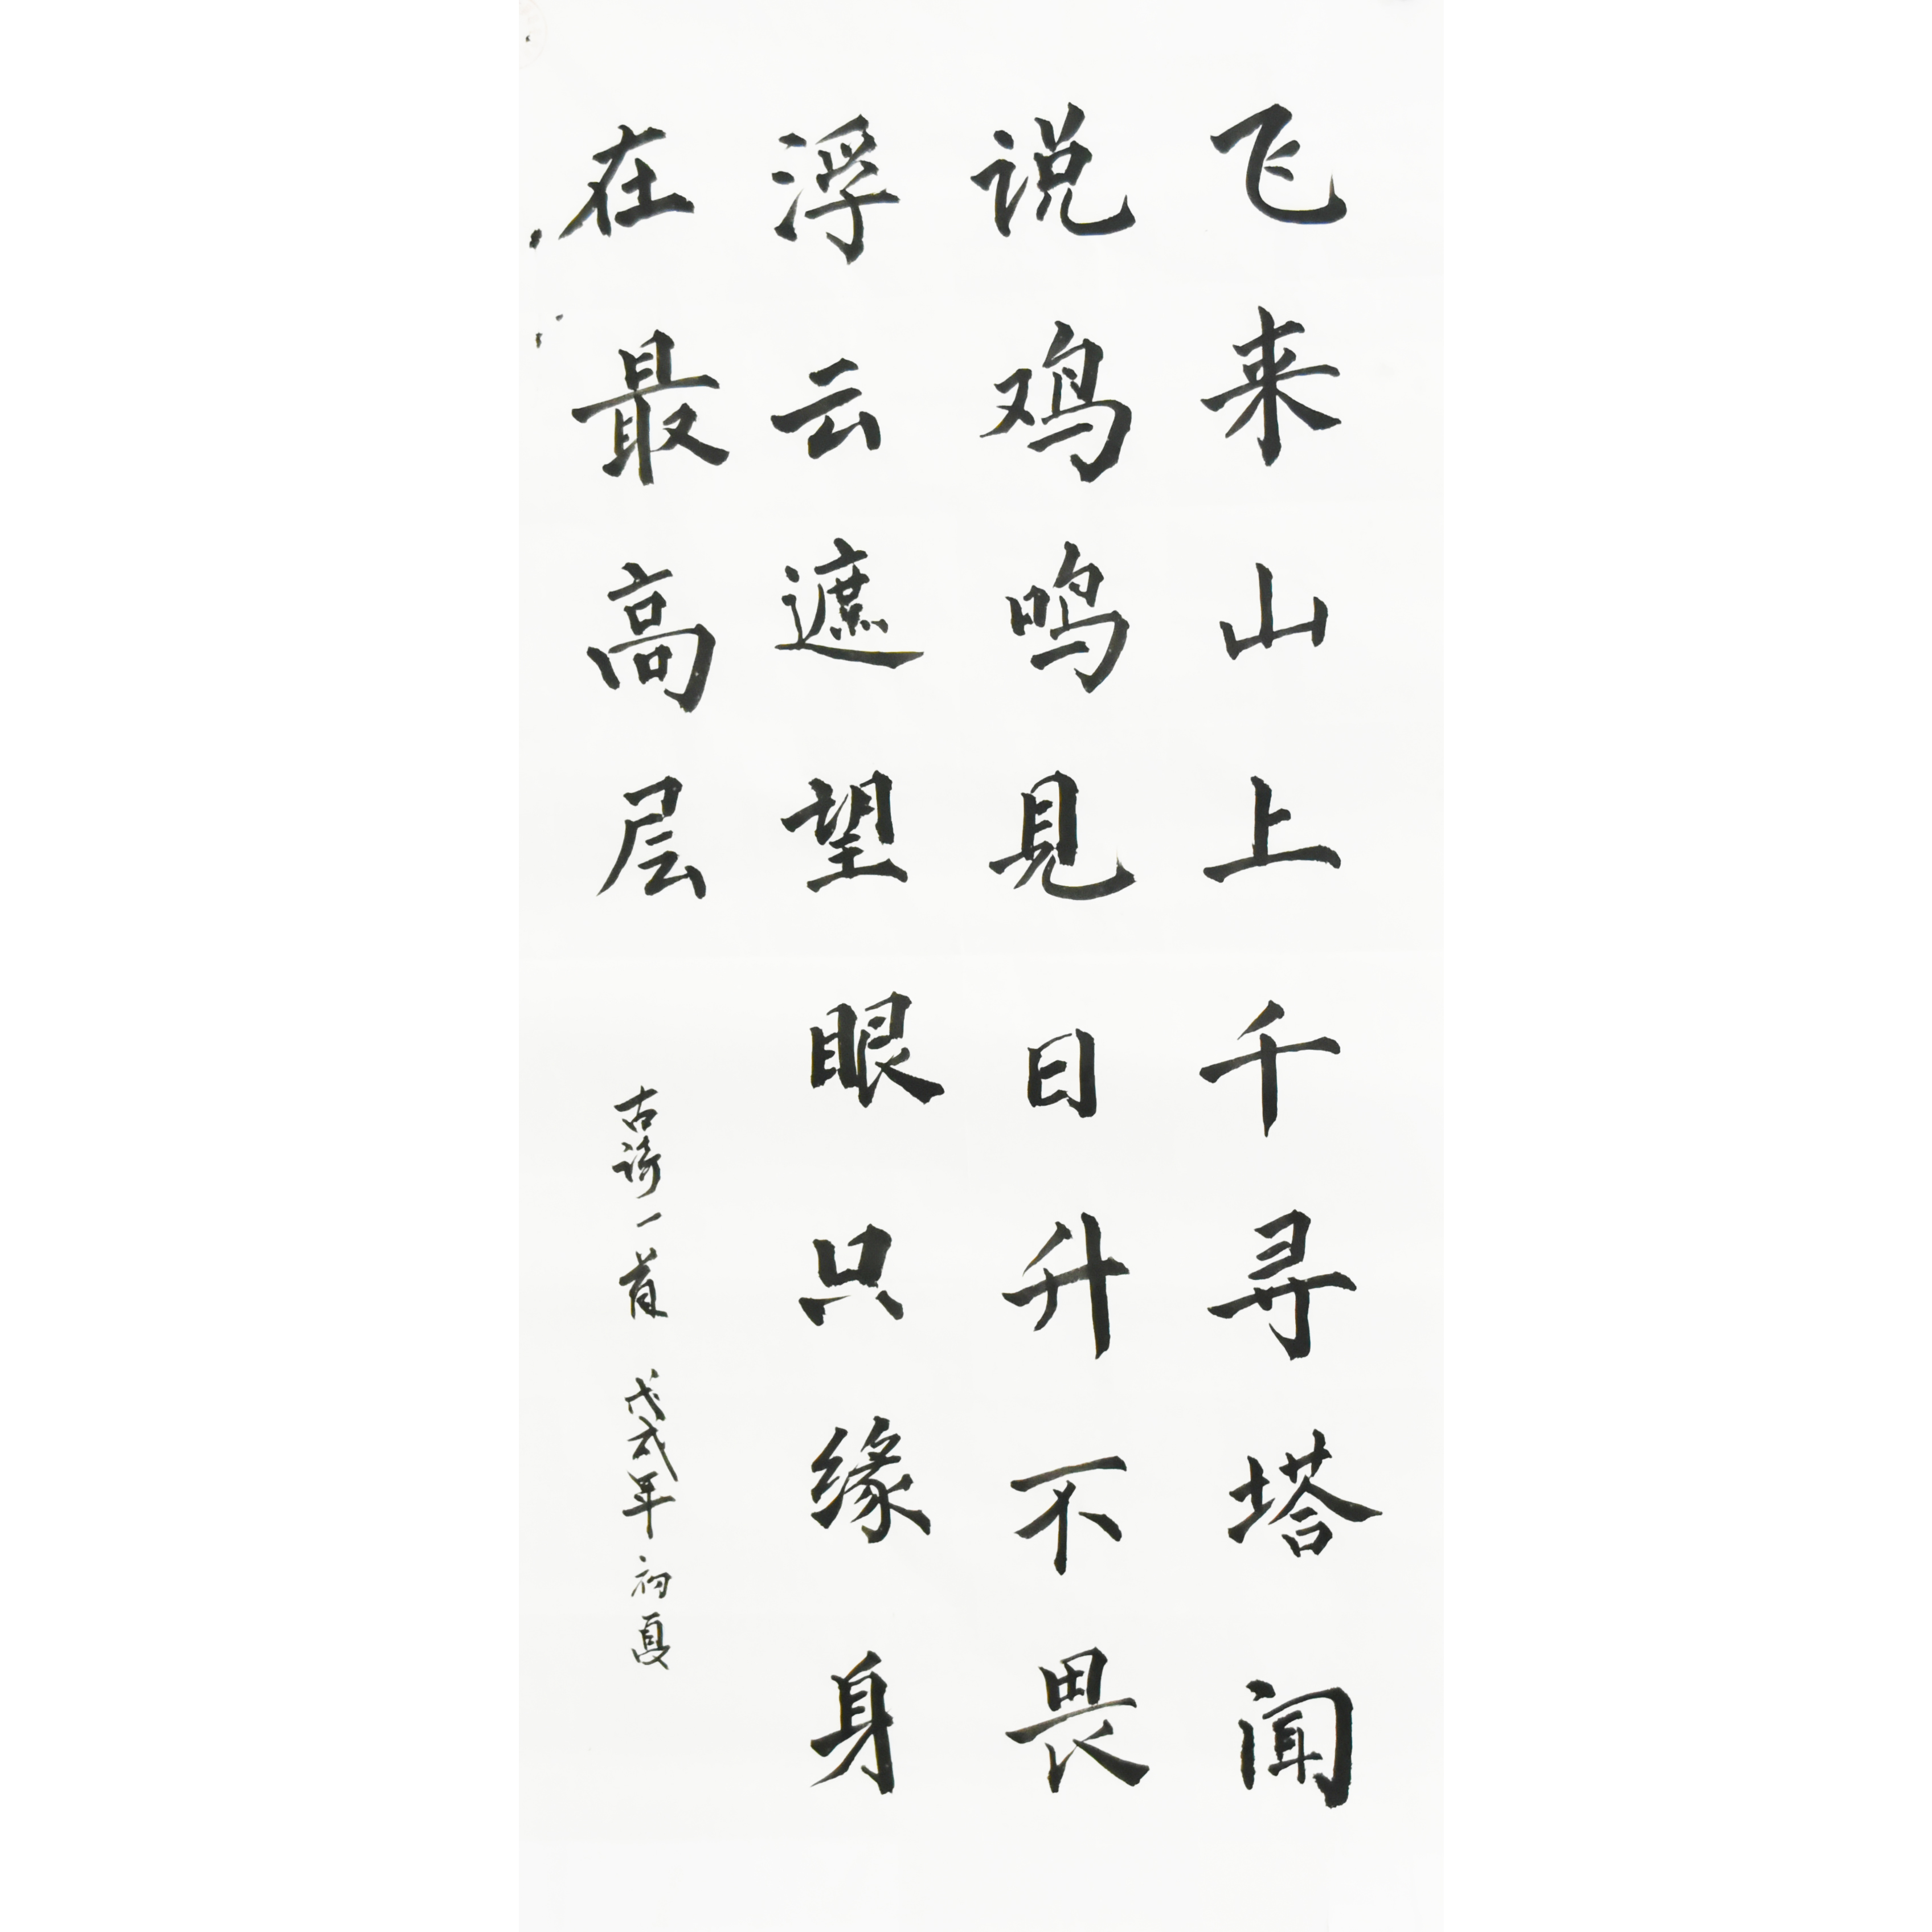 飞来山上千寻塔闻
说鸡鸣見日升不畏
浮云遮望眼只缘身
在最高层
古诗一首 戊戌年初夏